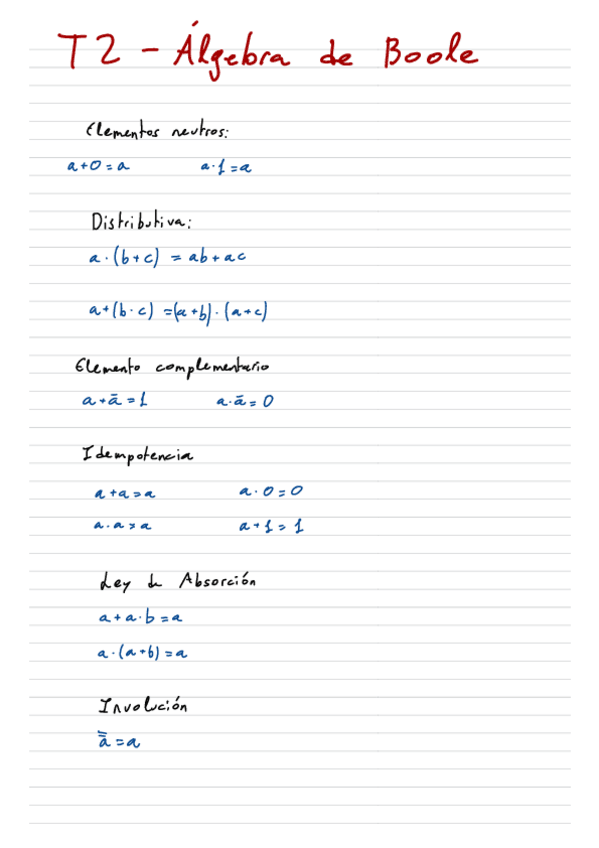 T2 - Álgebra de Boole
Elementos neutros:
a+0=a a·1=a
Distributiva:
a·(b+c) = ab+ac
a+(b·c) =(a+b)·(a+c)
Elemento complementario
a+ā=1 a·ā=0
Idempotencia
a+a=a a·0=0
a·a=a a+1=1
Ley de Absorción
a+a·b=a
a·(a+b)=a
Involución
a̿=a